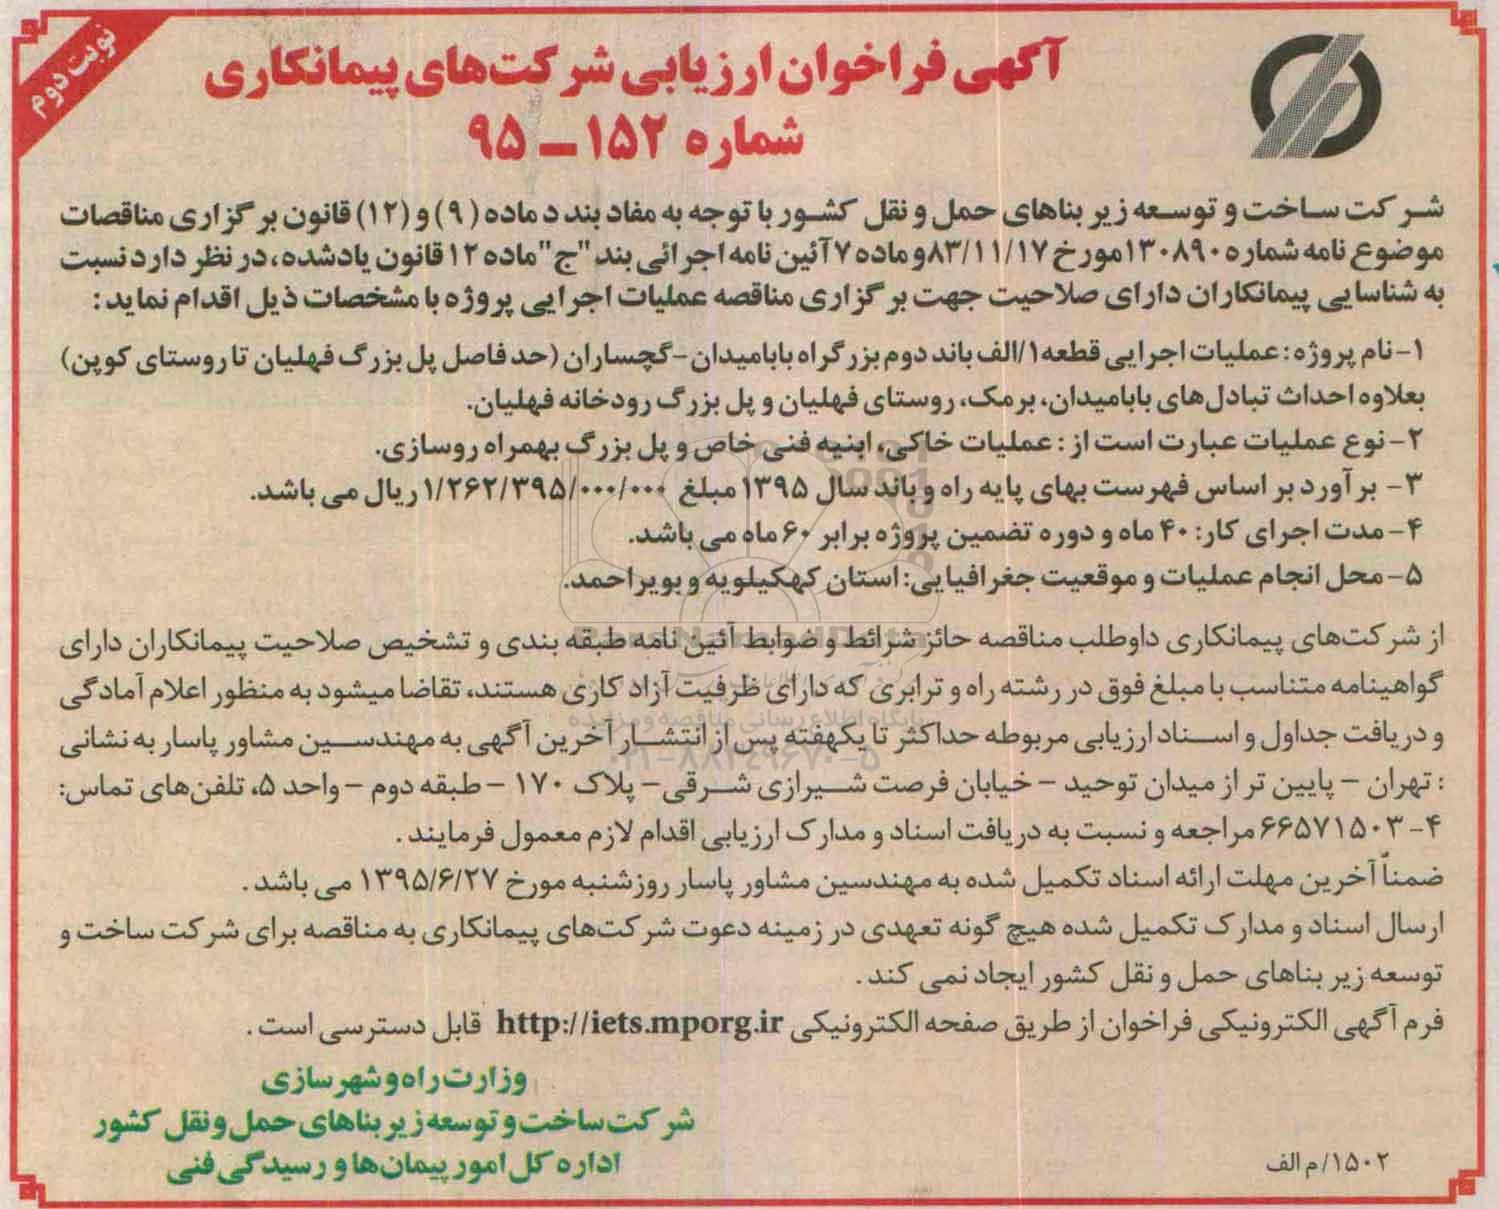 نوبت دوم
آگهی فراخوان ارزیابی شرکت‌های پیمانکاری
شماره ۱۵۲ – ۹۵
شرکت ساخت و توسعه زیر بناهای حمل و نقل کشور با توجه به مفاد بند د ماده (۹) و (۱۲) قانون برگزاری مناقصات
موضوع نامه شماره ۱۳۰۸۹۰مورخ ۸۳/۱۱/۱۷و ماده ۷ آئین نامه اجرائی بند "ج" ماده ۱۲ قانون یادشده، در نظر دارد نسبت
به شناسایی پیمانکاران دارای صلاحیت جهت برگزاری مناقصه عملیات اجرایی پروژه با مشخصات ذیل اقدام نماید :
۱- نام پروژه: عملیات اجرایی قطعه۱/الف باند دوم بزرگراه بابامیدان-گچساران (حد فاصل پل بزرگ فهلیان تا روستای کوپن)
بعلاوه احداث تبادل‌های بابامیدان، برمک، روستای فهلیان و پل بزرگ رودخانه فهلیان.
۲- نوع عملیات عبارت است از : عملیات خاکی، ابنیه فنی خاص و پل بزرگ بهمراه روسازی.
۳- برآورد بر اساس فهرست بهای پایه راه و باند سال ۱۳۹۵ مبلغ ۱/۲۶۲/۳۹۵/۰۰۰/۰۰۰ ریال می باشد.
۴- مدت اجرای کار: ۴۰ ماه و دوره تضمین پروژه برابر ۶۰ ماه می باشد.
۵- محل انجام عملیات و موقعیت جغرافیایی: استان کهکیلویه و بویراحمد.
از شرکت‌های پیمانکاری داوطلب مناقصه حائز شرائط و ضوابط آئین نامه طبقه بندی و تشخیص صلاحیت پیمانکاران دارای
گواهینامه متناسب با مبلغ فوق در رشته راه و ترابری که دارای ظرفیت آزاد کاری هستند، تقاضا میشود به منظور اعلام آمادگی
و دریافت جداول و اسناد ارزیابی مربوطه حداکثر تا یکهفته پس از انتشار آخرین آگهی به مهندسین مشاور پاسار به نشانی
: تهران – پایین تر از میدان توحید – خیابان فرصت شیرازی شرقی – پلاک ۱۷۰ – طبقه دوم – واحد ۵، تلفن‌های تماس:
۴- ۶۶۵۷۱۵۰۳ مراجعه و نسبت به دریافت اسناد و مدارک ارزیابی اقدام لازم معمول فرمایند .
ضمناً آخرین مهلت ارائه اسناد تکمیل شده به مهندسین مشاور پاسار روزشنبه مورخ ۱۳۹۵/۶/۲۷ می باشد .
ارسال اسناد و مدارک تکمیل شده هیچ گونه تعهدی در زمینه دعوت شرکت‌های پیمانکاری به مناقصه برای شرکت ساخت و
توسعه زیر بناهای حمل و نقل کشور ایجاد نمی کند .
فرم آگهی الکترونیکی فراخوان از طریق صفحه الکترونیکی http://iets.mporg.ir قابل دسترسی است .
وزارت راه و شهرسازی
شرکت ساخت و توسعه زیر بناهای حمل و نقل کشور
اداره کل امور پیمان‌ها و رسیدگی فنی
۱۵۰۲/م الف
پایگاه اطلاع رسانی مناقصه و مزایده
۰۲۱-۸۸۳۴۹۶۷۰-۵